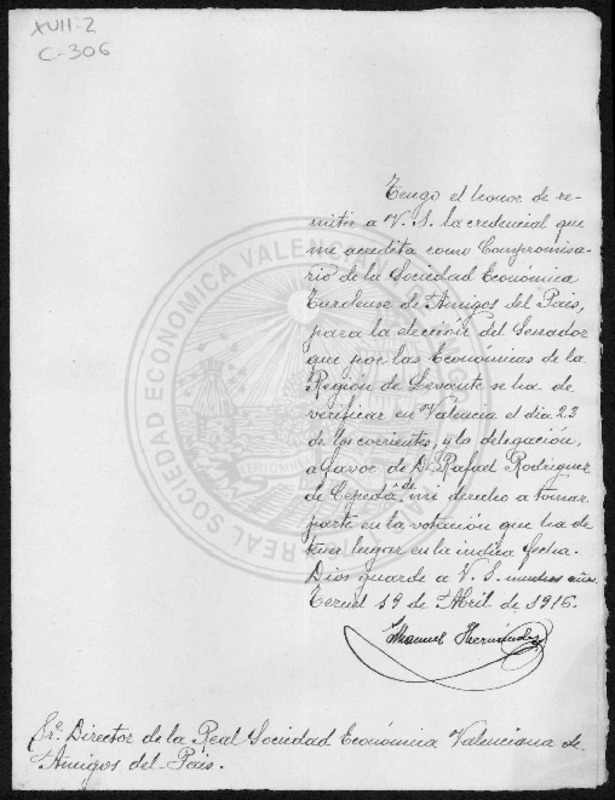 XVII-2
C-306
Tengo el honor de re-
mitir a V. S. la credencial que
me acredita como Compromisa-
rio de la Sociedad Económica
Turolense de Amigos del Pais,
para la elección del Senador
que por las Económicas de la
Región de Levante se ha de
verificar en Valencia el dia 23
de los corrientes, y la delegación,
a favor de D. Rafael Rodriguez
de Cepeda, de mi derecho a tomar
parte en la votación que ha de
tener lugar en la indica fecha.
Dios guarde a V. S. muchos años.
Teruel 19 de Abril de 1916.
Manuel Hernández
Sr. Director de la Real Sociedad Económica Valenciana de
Amigos del Pais.
REAL SOCIEDAD ECONOMICA VALENCIANA